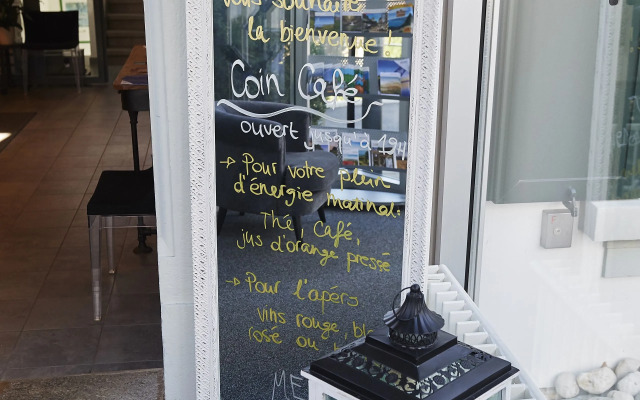 vous souhaite
la bienvenue !
Coin Café
ouvert jusqu'à 19H
→ Pour votre plein
d'énergie matinal:
Thé Café,
jus d'orange pressé
→ Pour l'apéro
vins rouge,
rosé ou